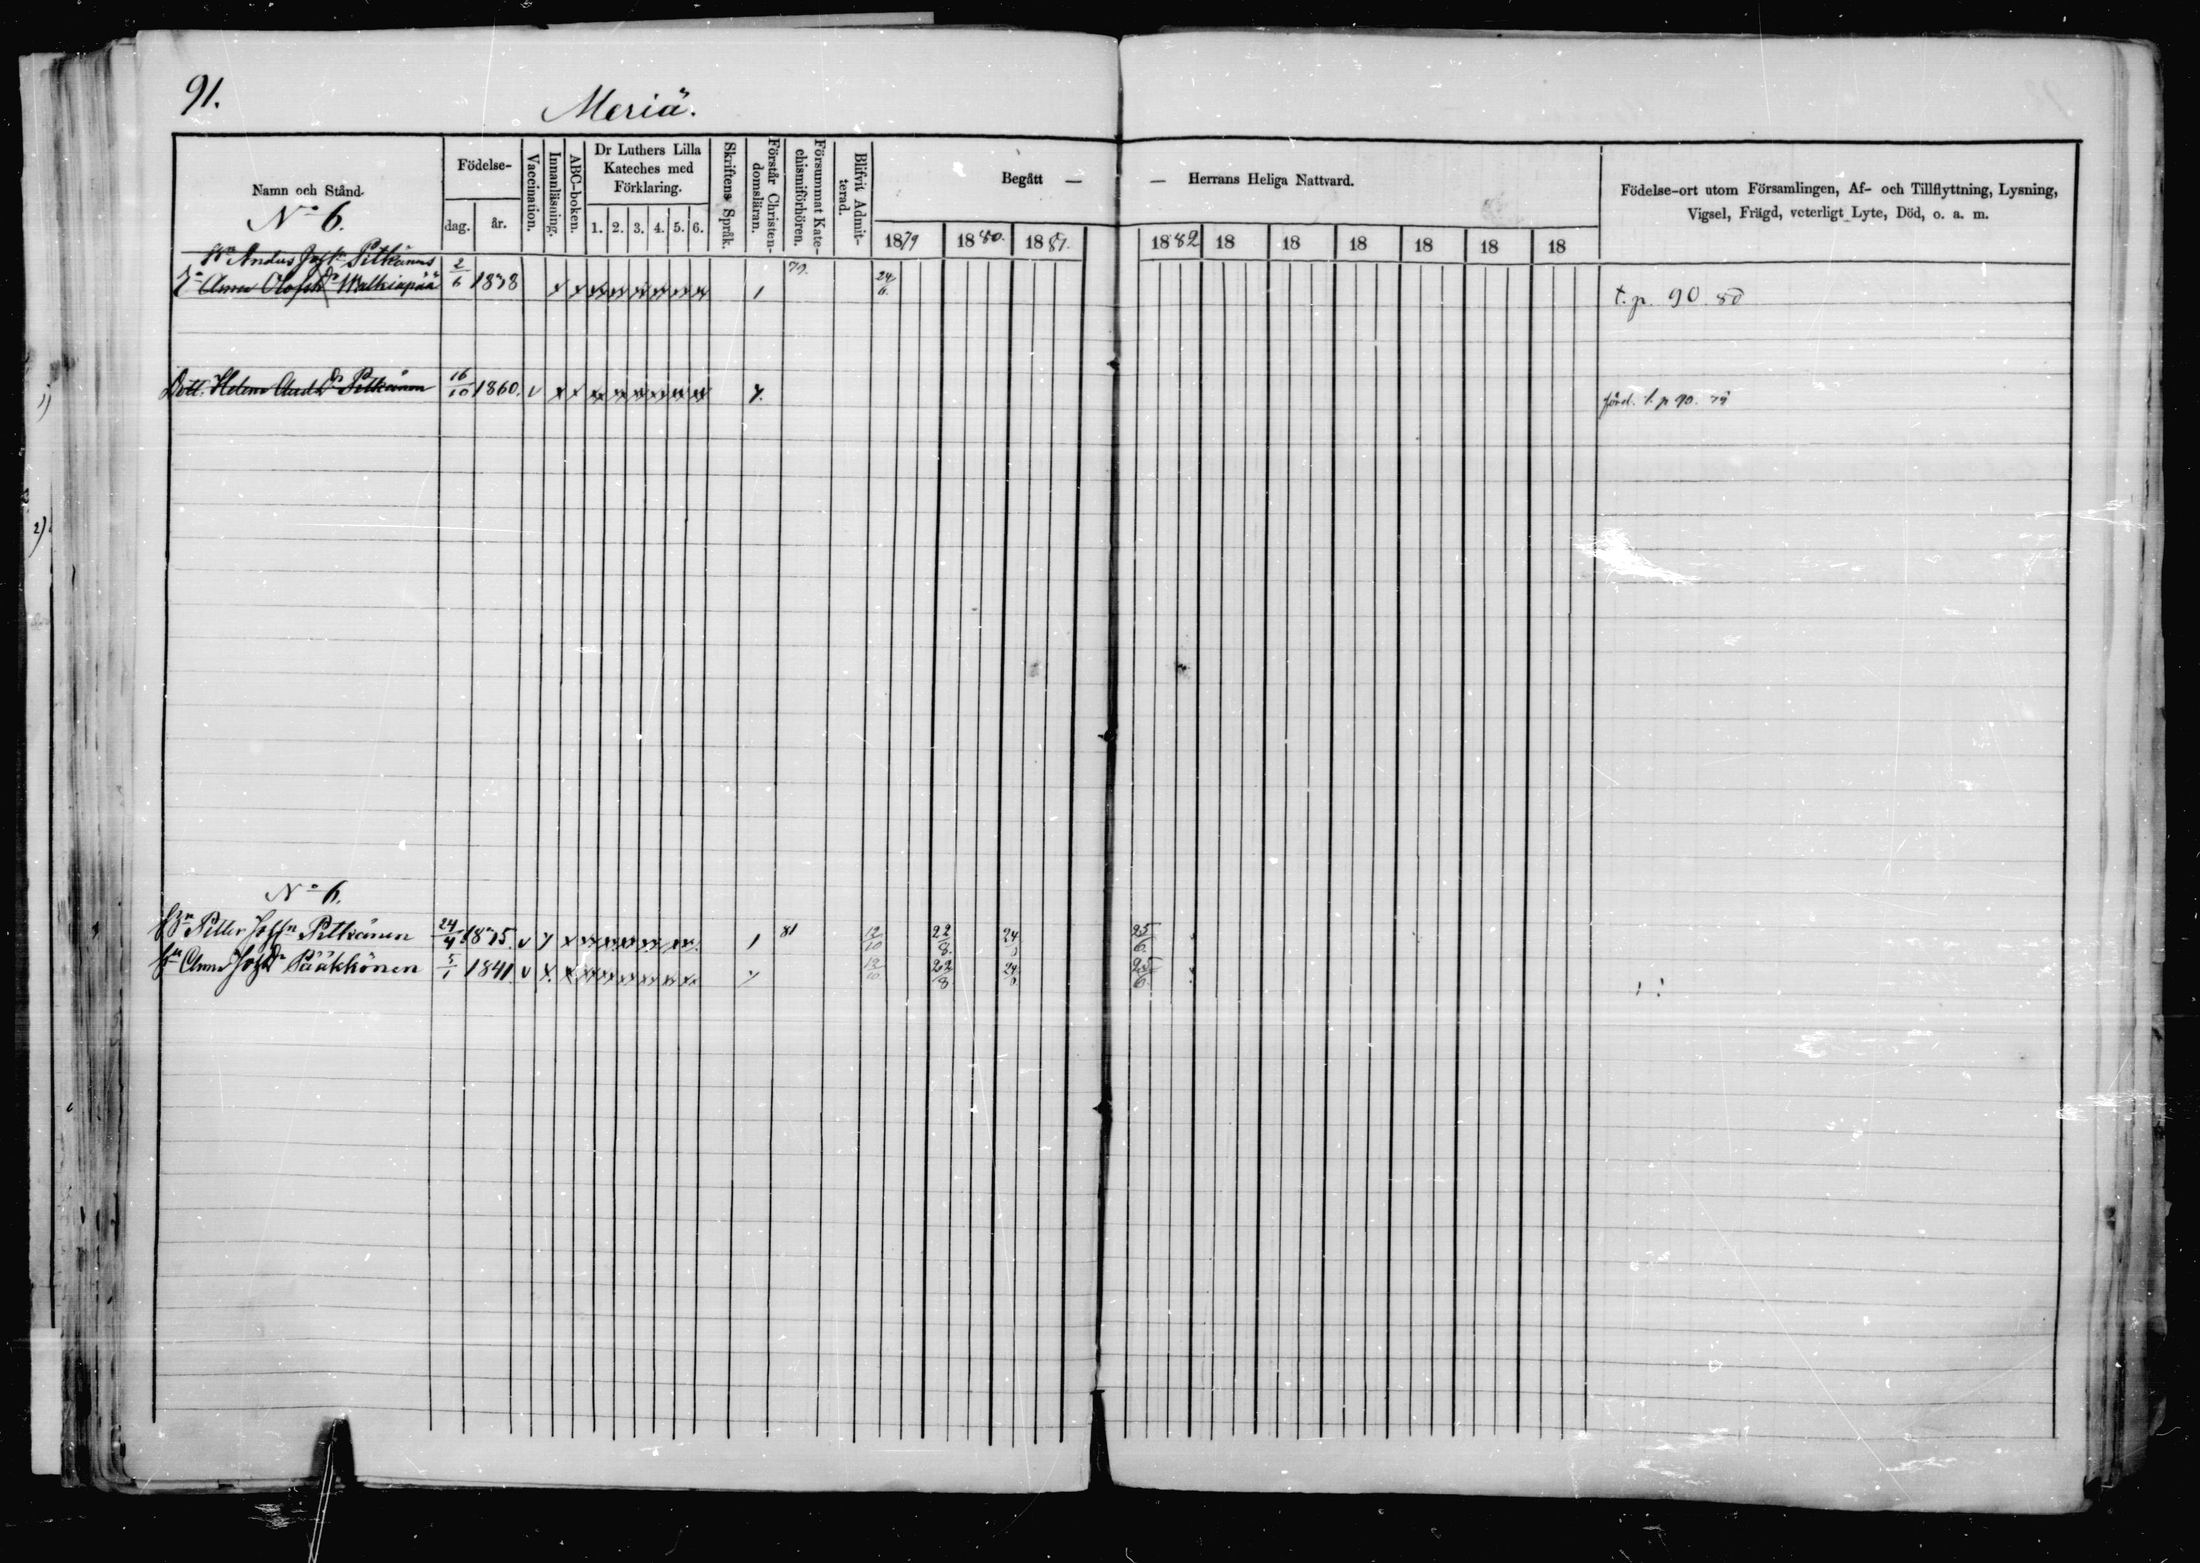 91.
Meriä.
Namn och Stånd.
Födelse-
dag.
år.
Vaccination.
Innanläsning.
ABC-boken.
Dr Luthers Lilla
Kateches med
Förklaring.
1. 2. 3. 4. 5. 6.
Skriftens Språk.
Förstår Christen-
domsläran.
Försummat Kate-
chismiförhören.
Blifvit Admit-
terad.
Begått — — Herrans Heliga Nattvard.
1879 1880. 1881. 1882 18 18 18 18 18 18
Födelse-ort utom Församlingen, Af- och Tillflyttning, Lysning,
Vigsel, Frägd, veterligt Lyte, Död, o. a. m.
No 6.
Pitkänens
Anna Olofs Dr Matkiapää 2/6 1838 79. 24/6 t. p. 90. 80
Dott. Helena Pitkänen 16/10 1860. v förd. t. p 90. 79
No 6.
Petter Josfn Pitkänen 24/4 v 81 12/10 22/8 24 25/6
Anna Dr Pääkkönen 5/1 1841. v 12/10 22/8 24 25/6